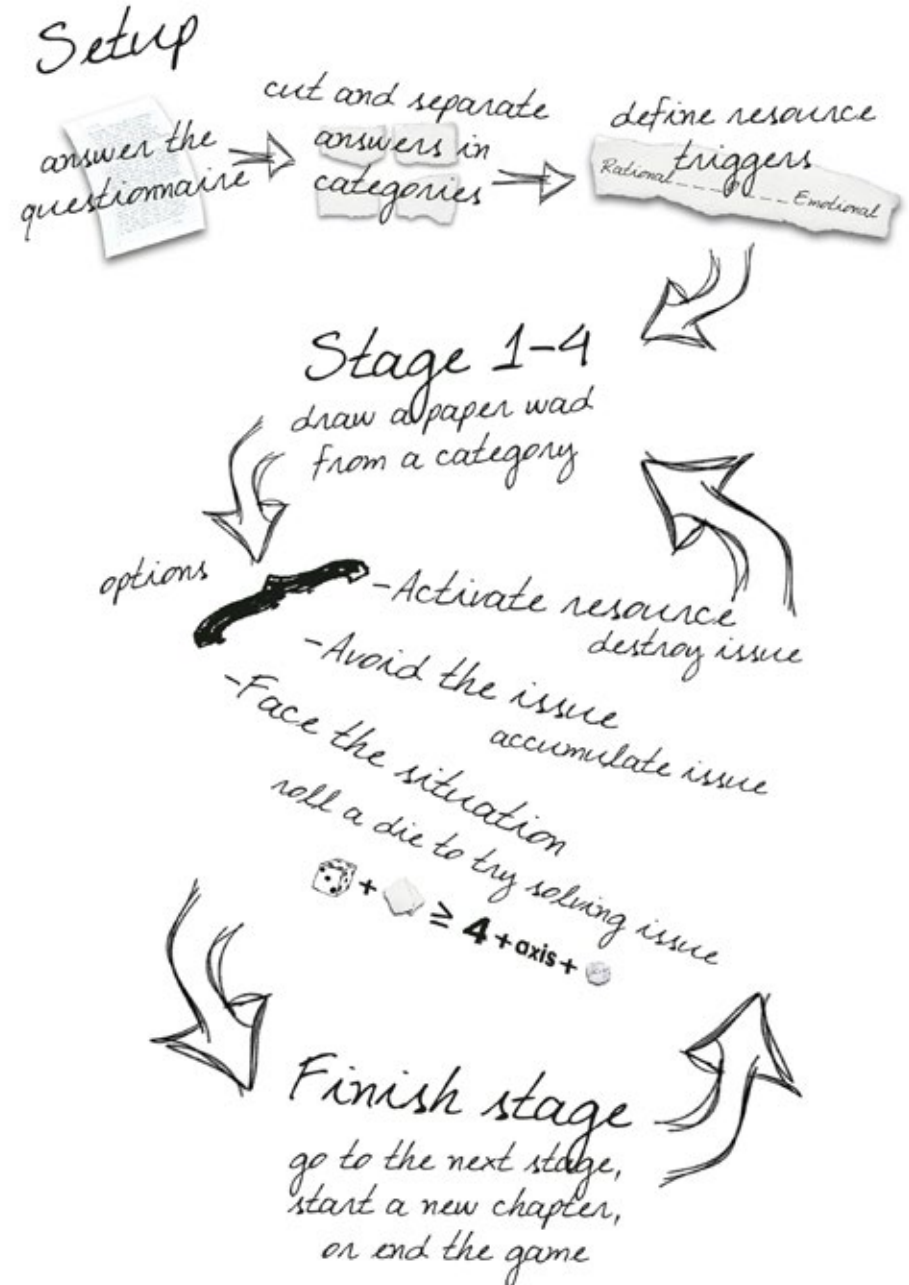 Setup
answer the
questionnaire
cut and separate
answers in
categories
define resource
triggers
Rational
Emotional
Stage 1-4
draw a paper wad
from a category
options
-Activate resource
destroy issue
-Avoid the issue
accumulate issue
-Face the situation
roll a die to try solving issue
+ ≥ 4 + axis +
Finish stage
go to the next stage,
start a new chapter,
or end the game